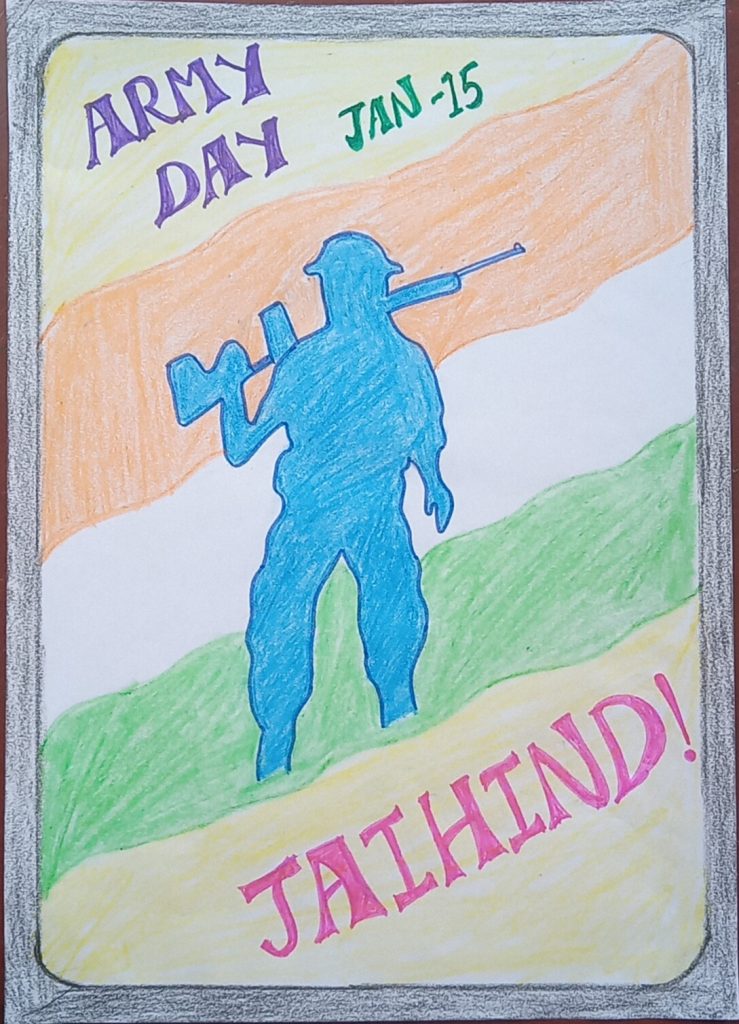 ARMY
DAY
JAN-15
JAIHIND!